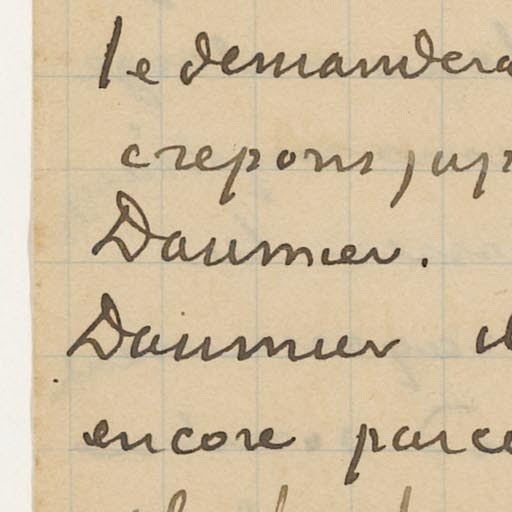 le demandera
crepons jap
Daumier.
Daumier
encore parce